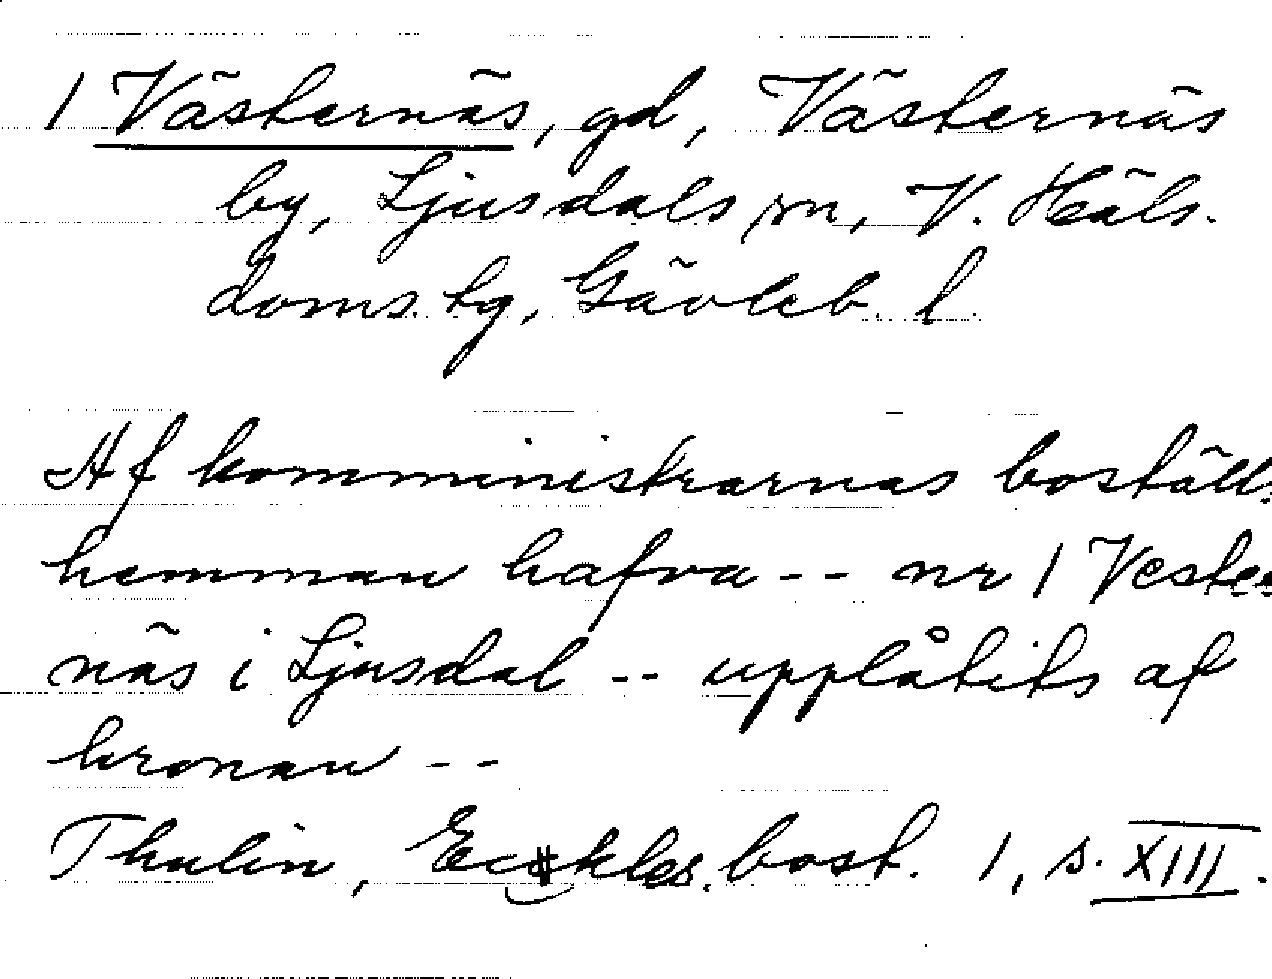 1 Västernäs, gd, Västernäs
by, Ljusdals sn, V. Häls.
doms. tg, Gävleb. l.
Af komministrarnas boställs
hemman hafva -- nr 1 Vester
näs i Ljusdal -- upplåtits af
kronan --
Thulin, Eckles. bost. 1, s. XIII.